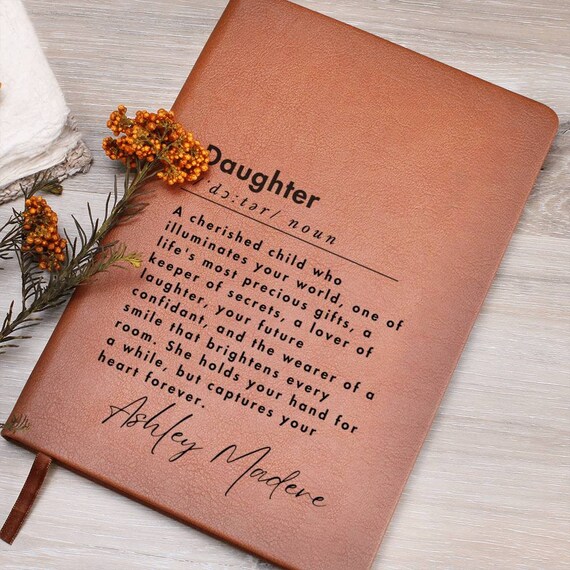 Daughter
/'dɔ:tər/ noun
A cherished child who
illuminates your world, one of
life's most precious gifts, a
keeper of secrets, a lover of
laughter, your future
confidant, and the wearer of a
smile that brightens every
room. She holds your hand for
a while, but captures your
heart forever.
Ashley Madene